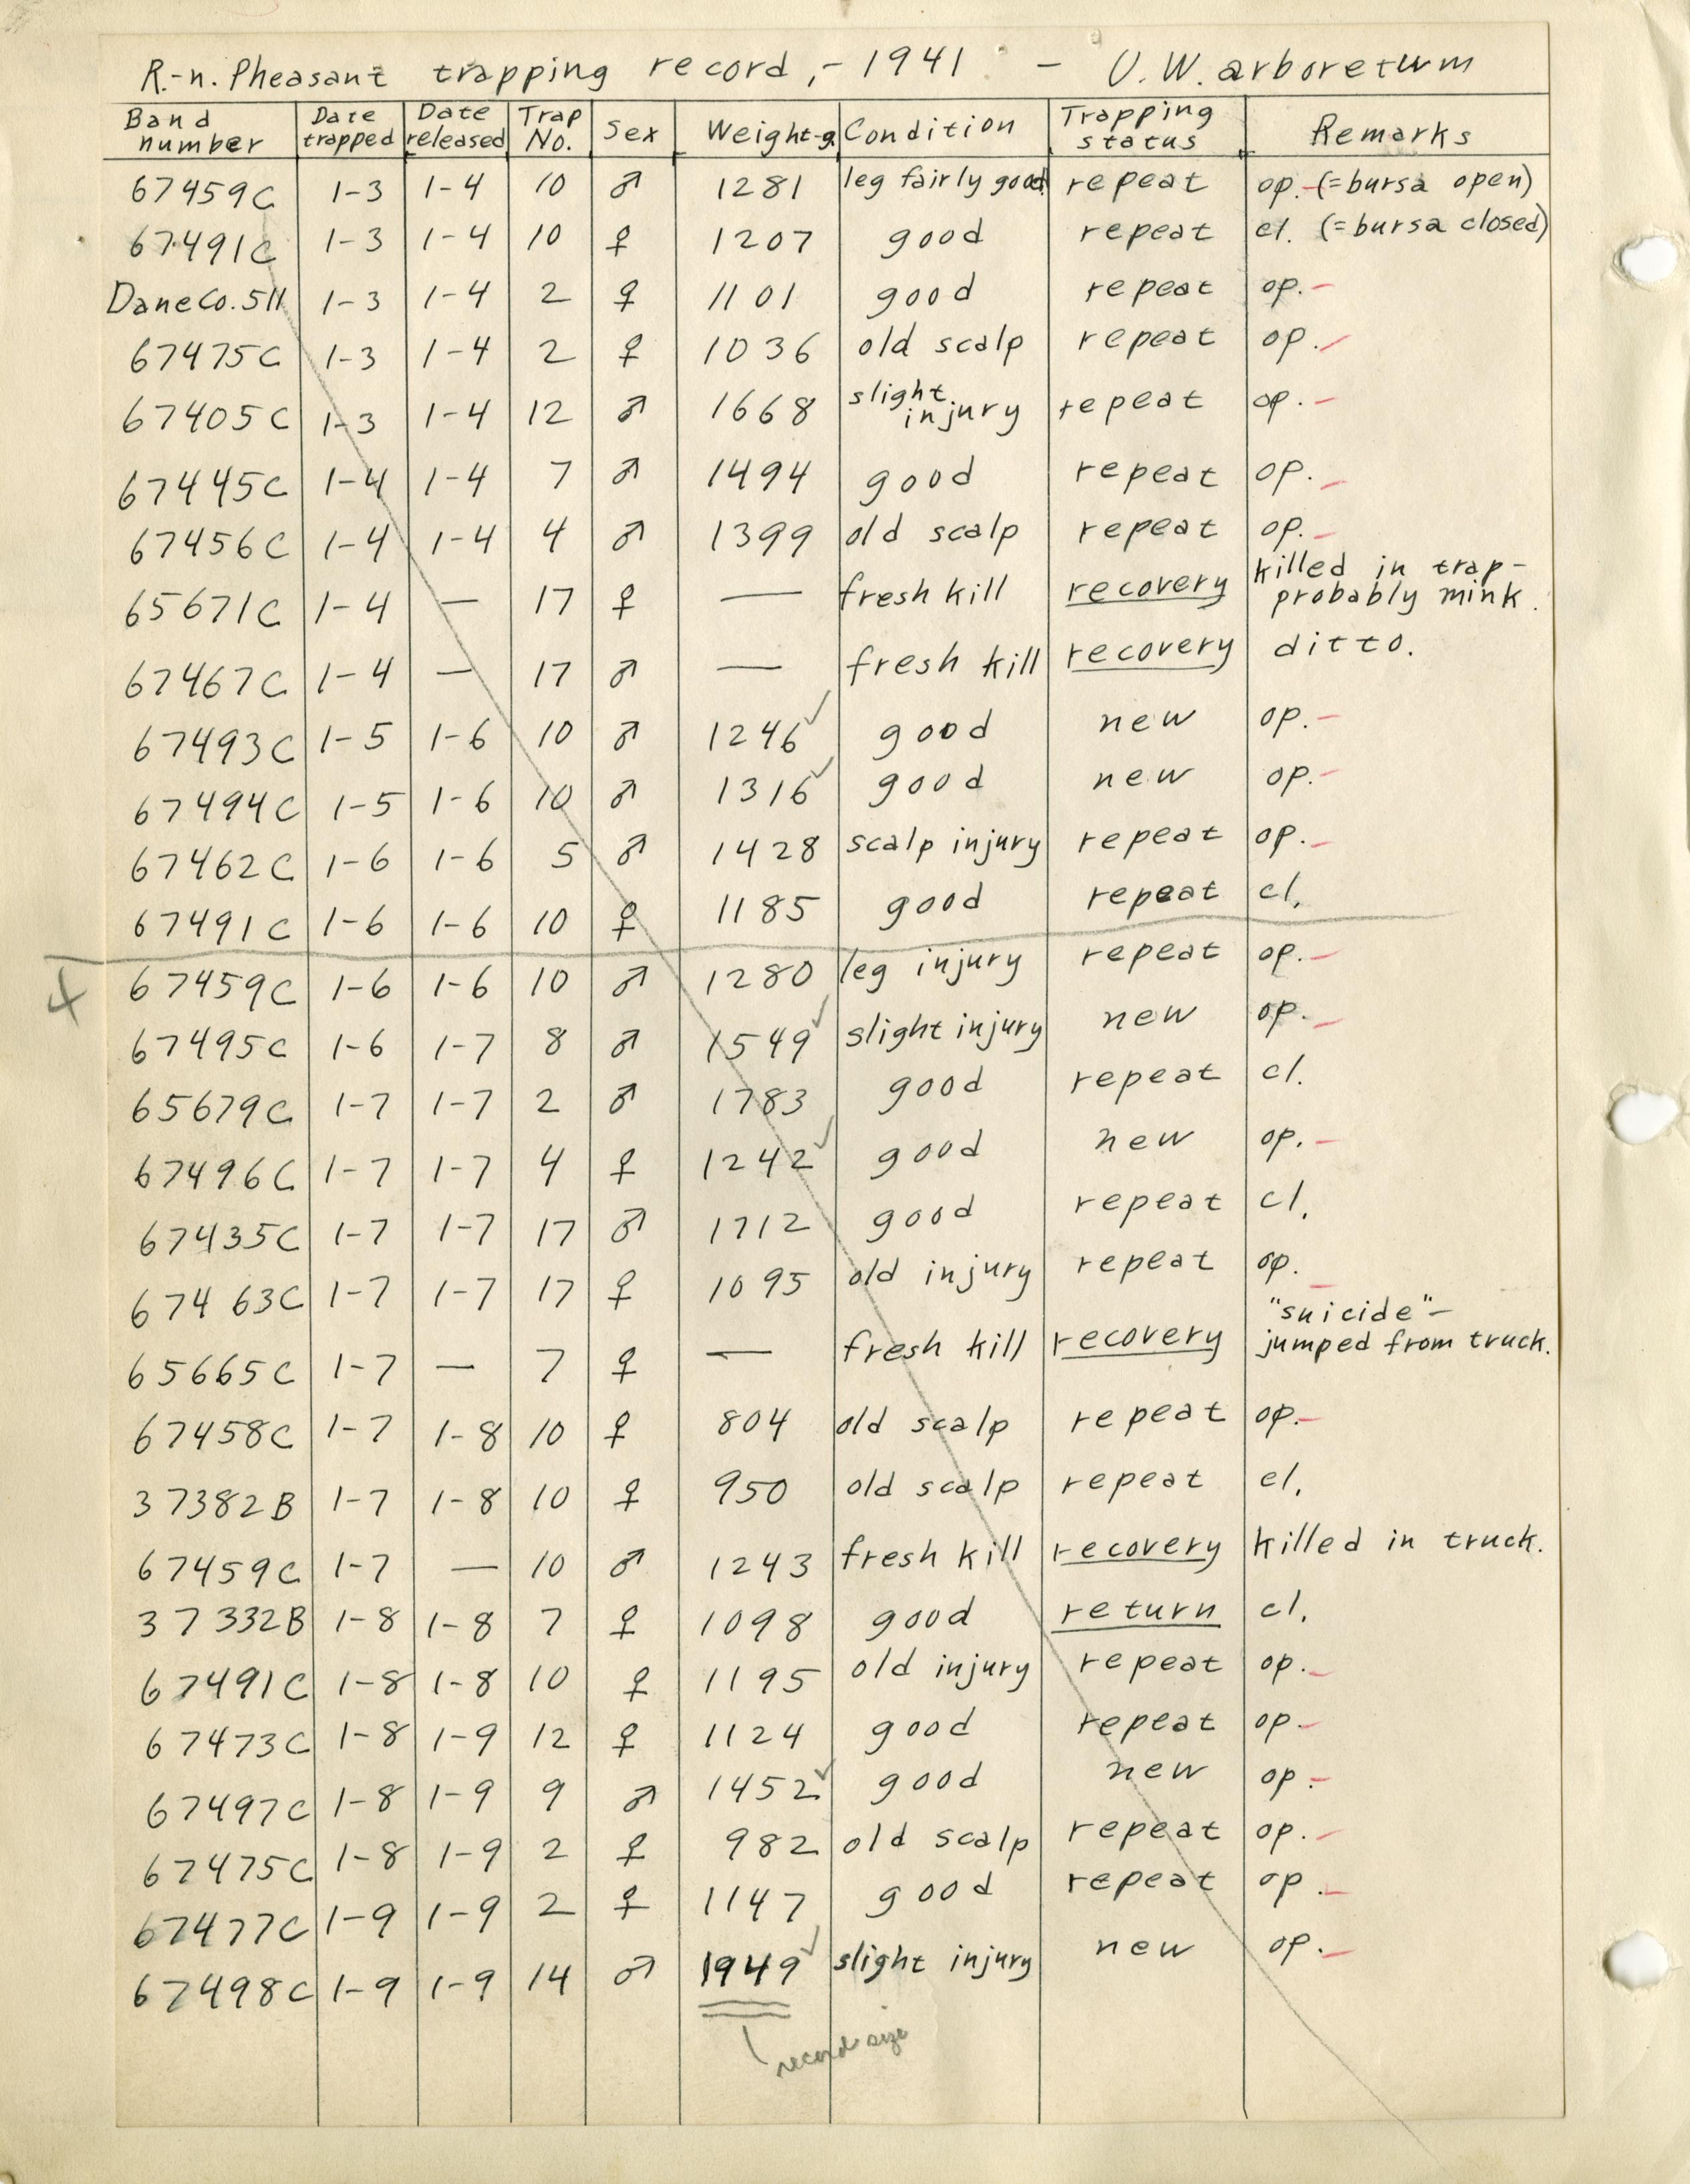 R.-n. Pheasant trapping record, - 1941 - U.W. arboretum
Band number Date trapped Date released Trap No. Sex Weight-g. Condition Trapping status Remarks
67459C 1-3 1-4 10 ♂ 1281 leg fairly good repeat op. (=bursa open)
67491C 1-3 1-4 10 ♀ 1207 good repeat cl. (=bursa closed)
Dane Co. 511 1-3 1-4 2 ♀ 1101 good repeat op.
67475C 1-3 1-4 2 ♀ 1036 old scalp repeat op.
67405C 1-3 1-4 12 ♂ 1668 slight injury repeat op.
67445C 1-4 1-4 7 ♂ 1494 good repeat op.
67456C 1-4 1-4 4 ♂ 1399 old scalp repeat op.
65671C 1-4 — 17 ♀ — fresh kill recovery killed in trap - probably mink.
67467C 1-4 — 17 ♂ — fresh kill recovery ditto.
67493C 1-5 1-6 10 ♂ 1246 ✓ good new op.
67494C 1-5 1-6 10 ♂ 1316 ✓ good new op.
67462C 1-6 1-6 5 ♂ 1428 scalp injury repeat op.
67491C 1-6 1-6 10 ♀ 1185 good repeat cl.
67459C 1-6 1-6 10 ♂ 1280 leg injury repeat op.
67495C 1-6 1-7 8 ♂ 1549 ✓ slight injury new op.
65679C 1-7 1-7 2 ♂ 1783 good repeat cl.
67496C 1-7 1-7 4 ♀ 1242 ✓ good new op.
67435C 1-7 1-7 17 ♂ 1712 good repeat cl.
67463C 1-7 1-7 17 ♀ 1095 old injury repeat op.
65665C 1-7 — 7 ♀ — fresh kill recovery "suicide" - jumped from truck.
67458C 1-7 1-8 10 ♀ 804 old scalp repeat op.
37382B 1-7 1-8 10 ♀ 950 old scalp repeat cl.
67459C 1-7 — 10 ♂ 1243 fresh kill recovery killed in truck.
37332B 1-8 1-8 7 ♀ 1098 good return cl.
67491C 1-8 1-8 10 ♀ 1195 old injury repeat op.
67473C 1-8 1-9 12 ♀ 1124 good repeat op.
67497C 1-8 1-9 9 ♂ 1452 ✓ good new op.
67475C 1-8 1-9 2 ♀ 982 old scalp repeat op.
67477C 1-9 1-9 2 ♀ 1147 good repeat op.
67498C 1-9 1-9 14 ♂ 1949 ✓ slight injury new op.
record size